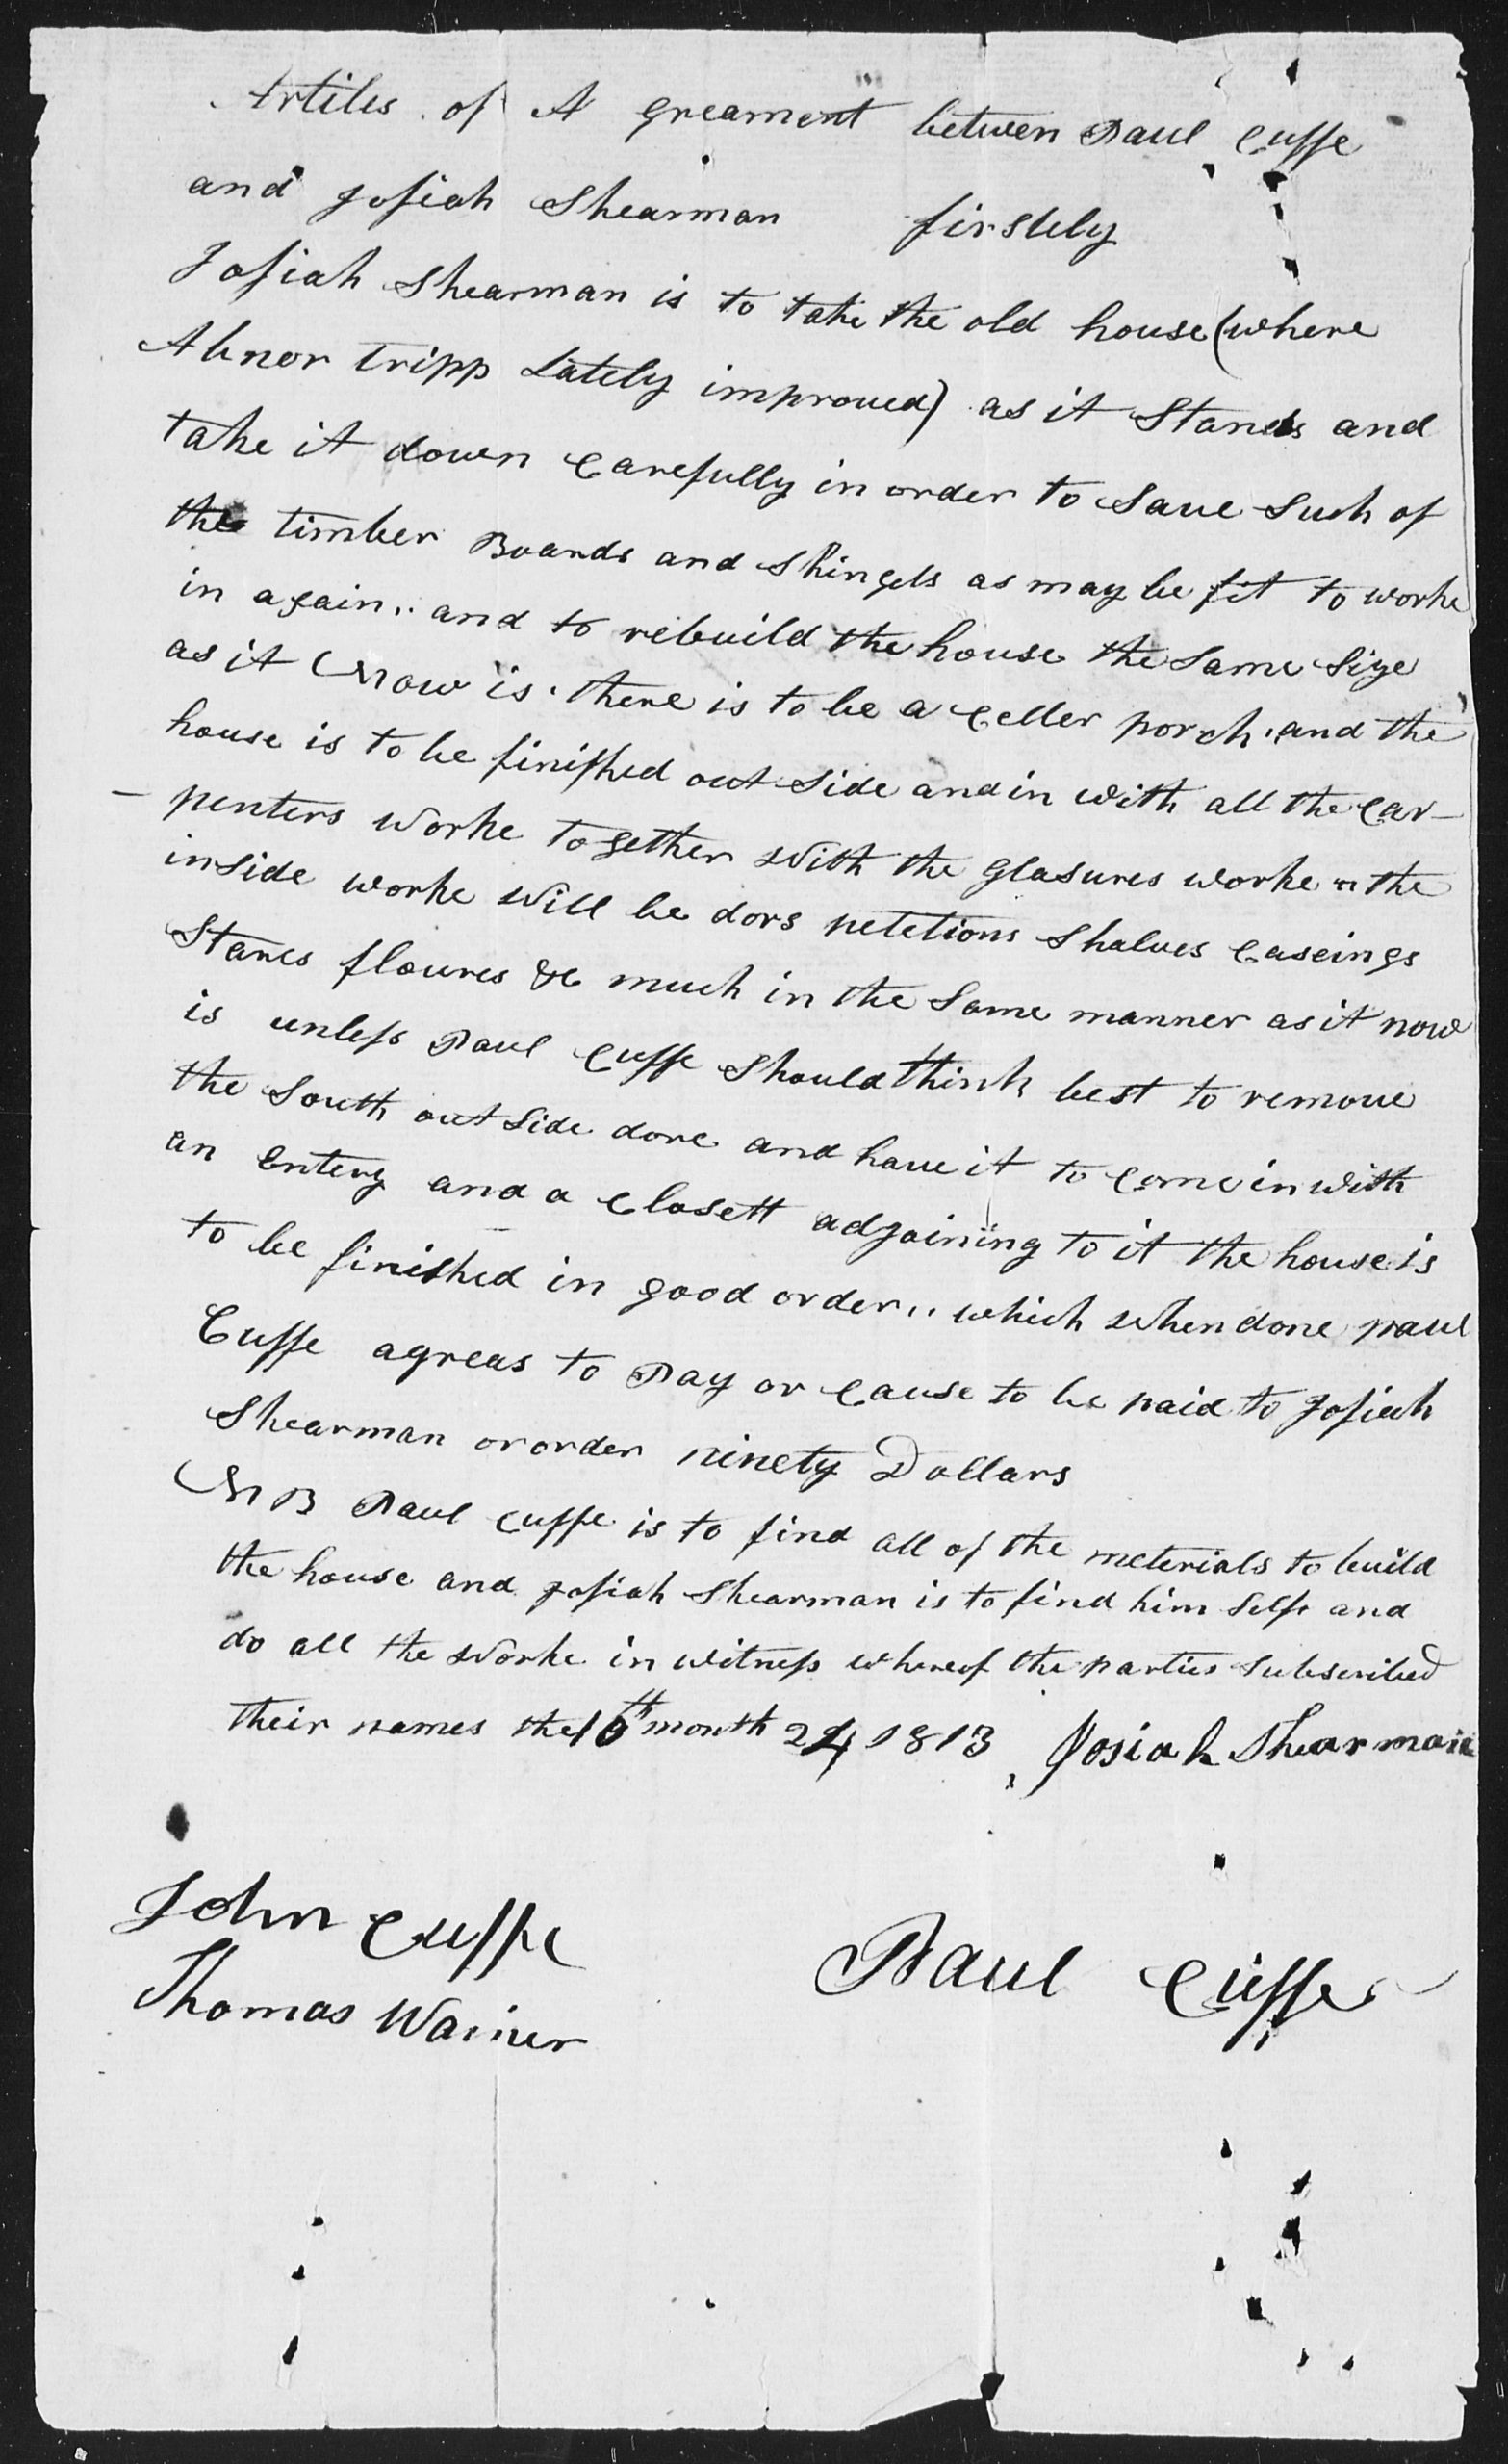 Artiles of A greament betwen Paul Cuffe
and Josiah Shearman firstely
Josiah Shearman is to take the old house (where
Abner Tripp Lately improued) as it Stands and
take it down Carefully in order to Saue Such of
the timber Boards and Shingels as may be fit to worke
in again,, and to rebuild the house the Same Size
as it Now is. there is to be a Celler porch. and the
house is to be finished out Side and in with all the Car-
-penters worke together with the glasures worke " the
inside worke will be dors petetions Shalues Caseings
Stares floures &c much in the Same manner as it now
is unless Paul Cuffe Should think best to remoue
the South out Side dore and haue it to Come in with
an entery and a Closett adjoining to it the house is
to be finished in good order,, which when done paul
Cuffe agreas to Pay or Cause to be paid to Josiah
Shearman or order ninety Dollars
NB Paul Cuffe is to find all of the meterials to build
the house and Josiah Shearman is to find him Self and
do all the worke in witness whereof the parties Subscribed
their names the 10th month 24 1813 Josiah Shearman
John Cuffe
Thomas Wainer
Paul Cuffe